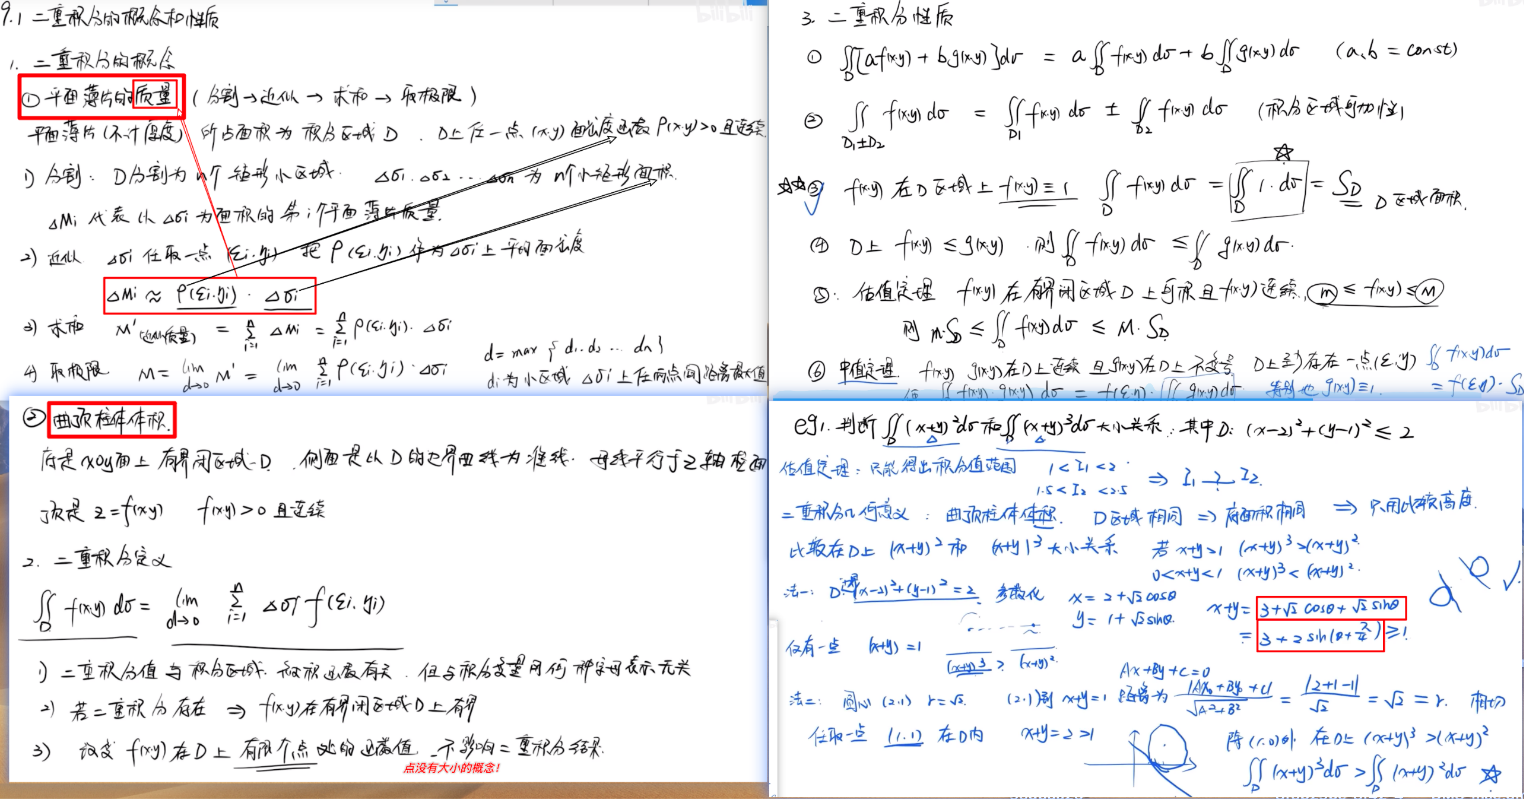 9.1 二重积分的概念和性质
1. 二重积分的概念
① 平面薄片的质量 (分割→近似→求和→取极限)
平面薄片(不计厚度) 所占面积为积分区域D. D上任一点(x,y)面密度函数ρ(x,y)>0且连续
1) 分割: D分割为n个矩形小区域. Δσ1.Δσ2...Δσn 为n个小矩形面积.
ΔMi 代表以Δσi为面积的第i个平面薄片质量.
2) 近似 Δσi任取一点(ξi.ηi) 把ρ(ξi.ηi)作为Δσi上平均面密度
ΔMi ≈ ρ(ξi.ηi)·Δσi
3) 求和 M'(近似质量) = Σ(i=1→n) ΔMi = Σ(i=1→n) ρ(ξi.ηi)·Δσi
4) 取极限 M = lim(d→0) M' = lim(d→0) Σ(i=1→n) ρ(ξi.ηi)·Δσi
d = max{d1.d2...dn}
di为小区域Δσi上任两点间距离最大值
② 曲顶柱体体积.
底是xoy面上有界闭区域D. 侧面是以D的边界曲线为准线. 母线平行于z轴柱面
顶是z=f(x,y) f(x,y)>0且连续
2. 二重积分定义
∬D f(x,y)dσ = lim(d→0) Σ(i=1→n) Δσi f(ξi.ηi)
1) 二重积分值与积分区域.被积函数有关.但与积分变量用何种字母表示无关
2) 若二重积分存在 ⇒ f(x,y)在有界闭区域D上有界
3) 改变f(x,y)在D上有限个点处的函数值 不影响二重积分结果.
点没有大小的概念!
3. 二重积分性质
① ∬D[af(x,y)+bg(x,y)]dσ = a∬D f(x,y)dσ + b∬D g(x,y)dσ (a,b=const)
② ∬D1±D2 f(x,y)dσ = ∬D1 f(x,y)dσ ± ∬D2 f(x,y)dσ (积分区域可加性)
☆☆③ f(x,y)在D区域上f(x,y)≡1 ∬D f(x,y)dσ = ∬D 1·dσ = SD D区域面积.
④ D上 f(x,y)≤g(x,y). 则∬D f(x,y)dσ ≤ ∬D g(x,y)dσ.
⑤: 估值定理 f(x,y)在有界闭区域D上可积且f(x,y)连续, m≤f(x,y)≤M
则 m·SD ≤ ∬D f(x,y)dσ ≤ M·SD
⑥ 中值定理 f(x,y) g(x,y)在D上连续 且g(x,y)在D上不变号 D上至少存在一点(ξ,η) ∬D f(x,y)dσ
使 ∬ f(x,y)g(x,y)dσ = f(ξ,η)·∬ g(x,y)dσ 特别地 g(x,y)≡1. = f(ξ,η)·SD
eg1. 判断∬D(x+y)²dσ和∬D(x+y)³dσ大小关系. 其中D: (x-2)²+(y-1)²≤2
估值定理: 只能得出积分值范围 1<I1<2
1.5<I2<2.5 ⇒ I1 ? I2.
二重积分几何意义: 曲顶柱体体积. D区域相同 ⇒ 底面积相同 ⇒ 只用比较高度.
比较在D上(x+y)²和(x+y)³大小关系 若x+y>1 (x+y)³>(x+y)²
0<x+y<1 (x+y)³<(x+y)².
法一: D边界(x-2)²+(y-1)²=2 参数化 x=2+√2cosθ
y=1+√2sinθ
x+y= 3+√2cosθ+√2sinθ
= 3+2sin(θ+π/4) ≥1
仅有一点 (x+y)=1 (x+y)³ > (x+y)².
Ax+By+C=0
法二: 圆心(2.1) r=√2. (2.1)到x+y=1距离为 |Ax0+By0+C|/√(A²+B²) = |2+1-1|/√2 = √2 = r. 相切
任取一点(1.1)在D内 x+y=2>1
除(1.0)外 在D上(x+y)³>(x+y)²
∬D(x+y)³dσ>∬D(x+y)²dσ ☆